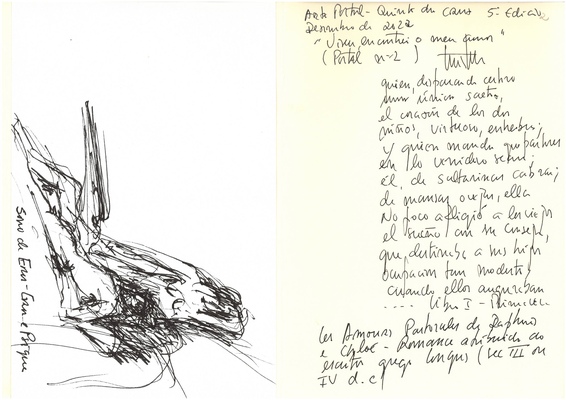 Arte Portal - Quinta da Cruz 5ª Edição
Dezembro de 2022
"Viseu, encontrei o meu amor"
(Portal nº 2)
quien, disparando certero
una única saeta,
el corazón de los dos
niños, virtuoso, enhebra;
y quien manda que pastores
en lo venidero sean;
él, de saltarinas cabras;
de mansas ovejas, ella
No poco afligió a los viejos
el sueño con su
que, destinaba a sus hijos
ocupación tan modesta
cuando ellos auguraban
.... Libro I -
Les Amours Pastorales de Daphnis
e Chloé - Romance atribuido ao
escritor grego Longus (sec III ou
IV d.c)
Sono de Eros -